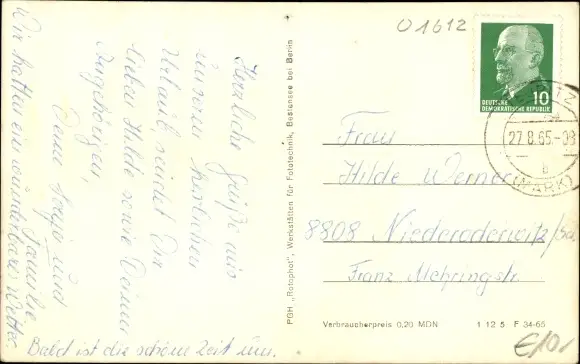 Herzliche Grüße aus
unserem herrlichen
Urlaub, sendet Dir
liebe Hilde sowie Deinen
Angehörigen,
Deine
und
Familie
Wir hatten ein wunderbares Wetter
Bald ist die schöne Zeit um.
PGH „Rotophot“, Werkstätten für Fototechnik, Bestensee bei Berlin
O1612
DEUTSCHE
DEMOKRATISCHE REPUBLIK
10
27.8.65.-08
b
(MARK)
Frau
Hilde Werner
8808 Niederoderwitz/Sa.
Franz Mehringstr.
Verbraucherpreis 0,20 MDN
1 12 5 F 34-65
€101